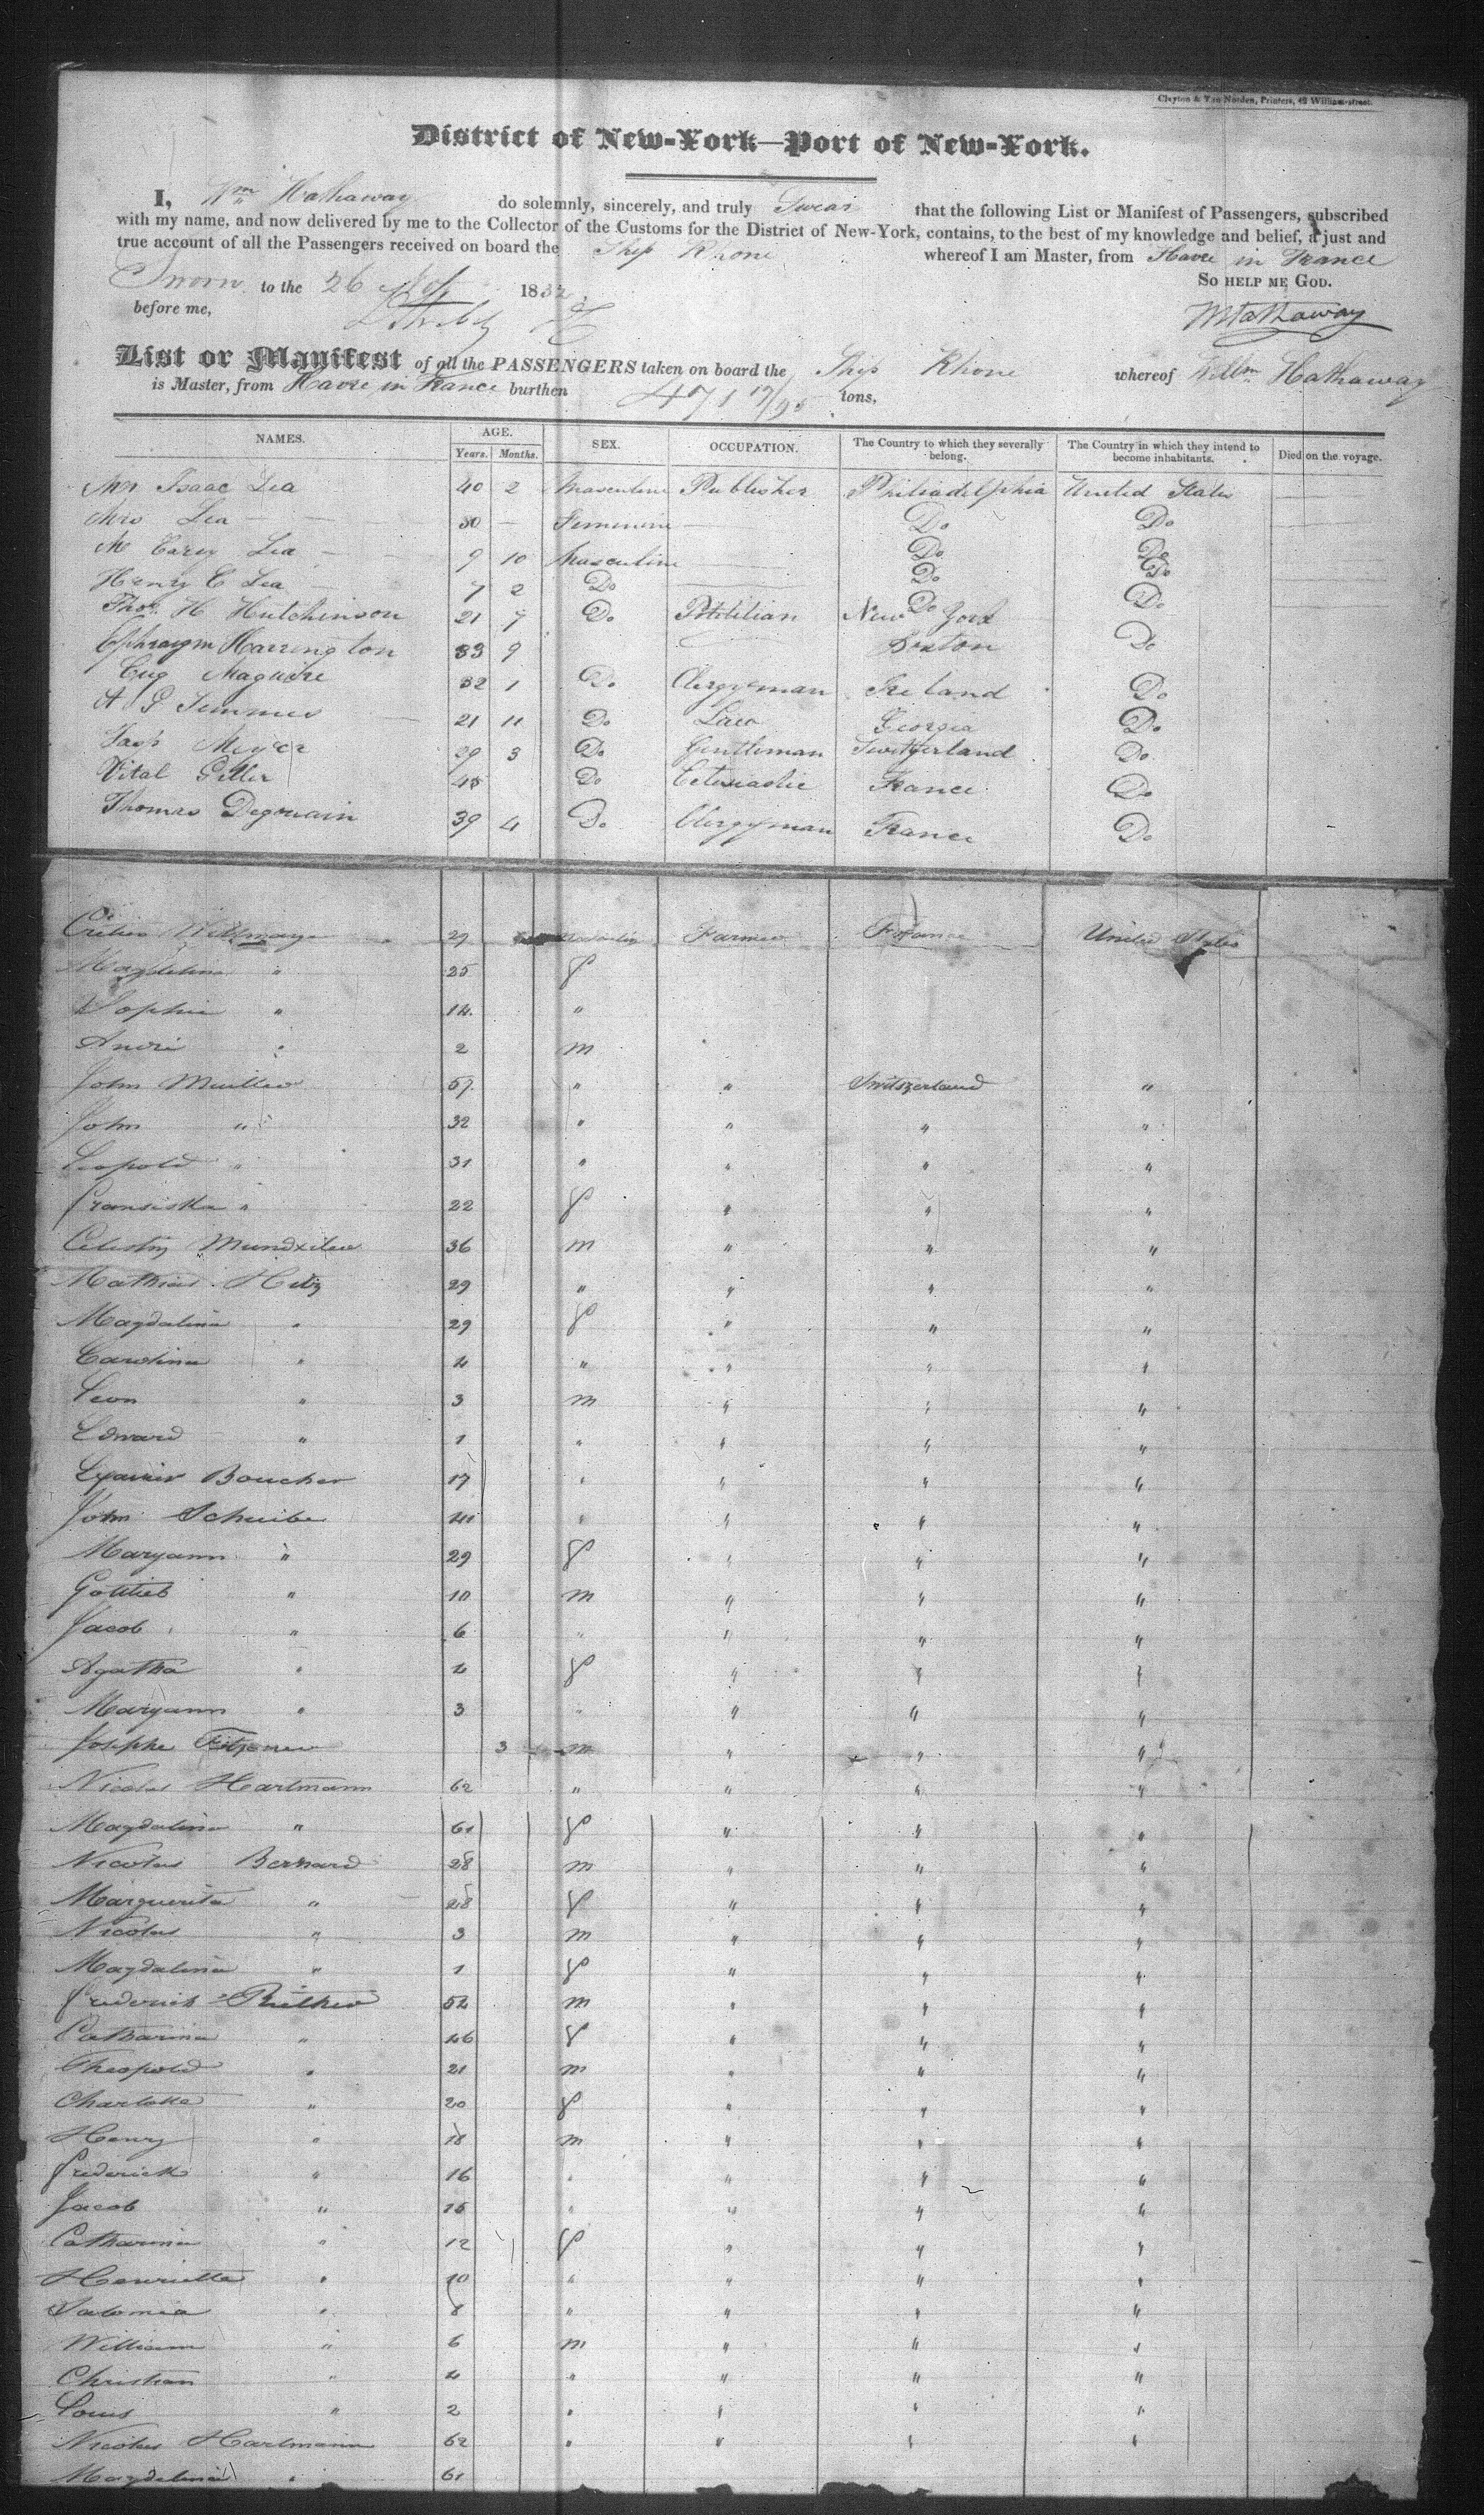 Clayton & Van Norden, Printers, 42 William-street.
District of New-York—Port of New-York.
I, Wm Hathaway do solemnly, sincerely, and truly Swear that the following List or Manifest of Passengers, subscribed
with my name, and now delivered by me to the Collector of the Customs for the District of New-York, contains, to the best of my knowledge and belief, a just and
true account of all the Passengers received on board the Ship Rhone whereof I am Master, from Havre in France
Sworn to the 26 1832 So help me God.
before me, W Hathaway
List or Manifest of all the PASSENGERS taken on board the Ship Rhone whereof Willm Hathaway
is Master, from Havre in France burthen 471 17/95 tons,
NAMES. AGE. Years. Months. SEX. OCCUPATION. The Country to which they severally belong. The Country in which they intend to become inhabitants. Died on the voyage.
Mr Isaac Lea 40 2 Masculine Publisher Philiadelphia United States
Mrs Lea 30 Femenine Do Do
M Carey Lea 9 10 Masculine Do Do
Henry C Lea 7 2 Do Do Do
Thos. H Hutchinson 21 7 Do New York Do
Ephraym Harrington 33 9 Boston Do
Eug Maguire 32 1 Do Clergyman Ireland Do
A G Semmes 21 11 Do Law Georgia Do
Jasp Meyer 29 3 Do Gentleman Switzerland Do
Vital Geller 45 Do France Do
Thomas Degouain 39 4 Do Clergyman France Do
29 Farmer France United States
Magdelina " 25 f
Sophia " 14 "
André " 2 m
John Muller 57 " " Switszerland "
John " 32 " " " "
Leopold " 31 " " " "
Fransiska " 22 f " " "
Celestin 36 m " " "
Mathias 29 " " " "
Magdalina " 29 f " " "
Carolina " 4 " " " "
Leon " 3 m " " "
Edward " 1 " " " "
Boucher 17 " " " "
John Scheibe 41 " " " "
Maryann " 29 f " " "
Gottlieb " 10 m " " "
Jacob " 6 " " " "
Agatha " 4 f " " "
Maryann " 3 " " " "
Josephe 3 m " " "
Nicolas Hartmann 62 " " " "
Magdalina " 61 f " " "
Nicolas Bernard 28 m " " "
Marguerita " 28 f " " "
Nicolas " 3 m " " "
Magdalina " 1 f " " "
Frederick 52 m " " "
Catharina " 46 f " " "
Theopold " 21 m " " "
Charlotte " 20 f " " "
Henry " 18 m " " "
Frederick " 16 " " " "
Jacob " 15 " " " "
Catharina " 12 f " " "
Henrietta " 10 " " " "
Salomea " 8 " " " "
William " 6 m " " "
Christian " 4 " " " "
Louis " 2 " " " "
Nicolas Hartmann 62 " " " "
Magdelina " 61